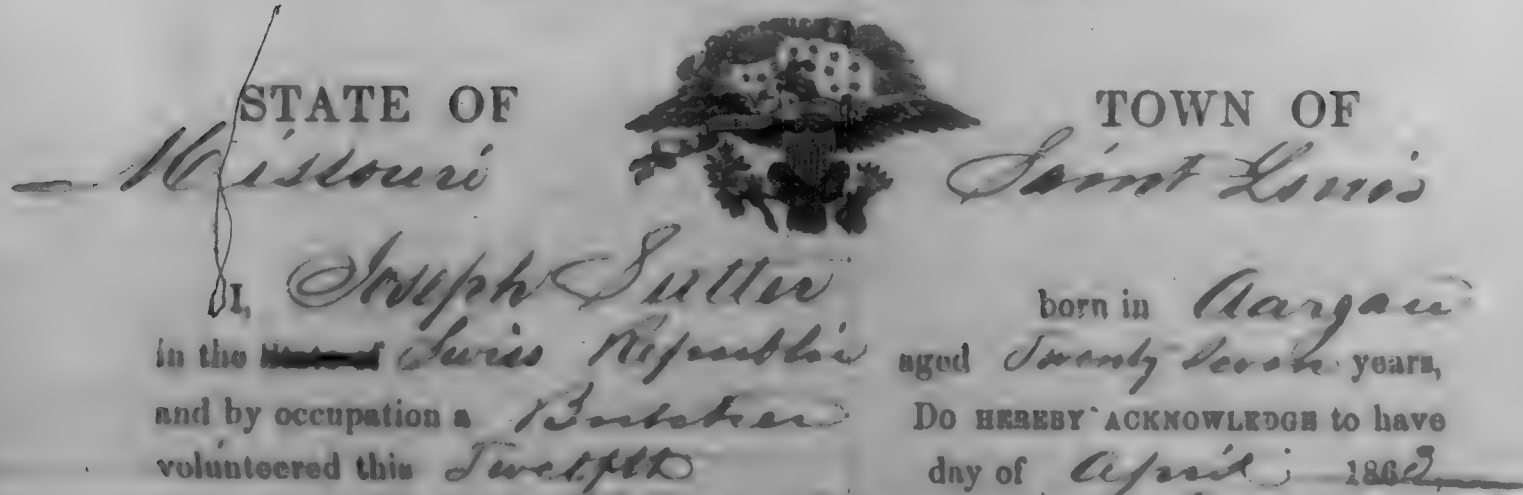 STATE OF TOWN OF
Missouri Saint Louis
I, Joseph Sutter born in Aargau
in the Swiss Republic aged Twenty Seven years,
and by occupation a Butcher Do HEREBY ACKNOWLEDGE to have
volunteered this Twelfth day of April 186